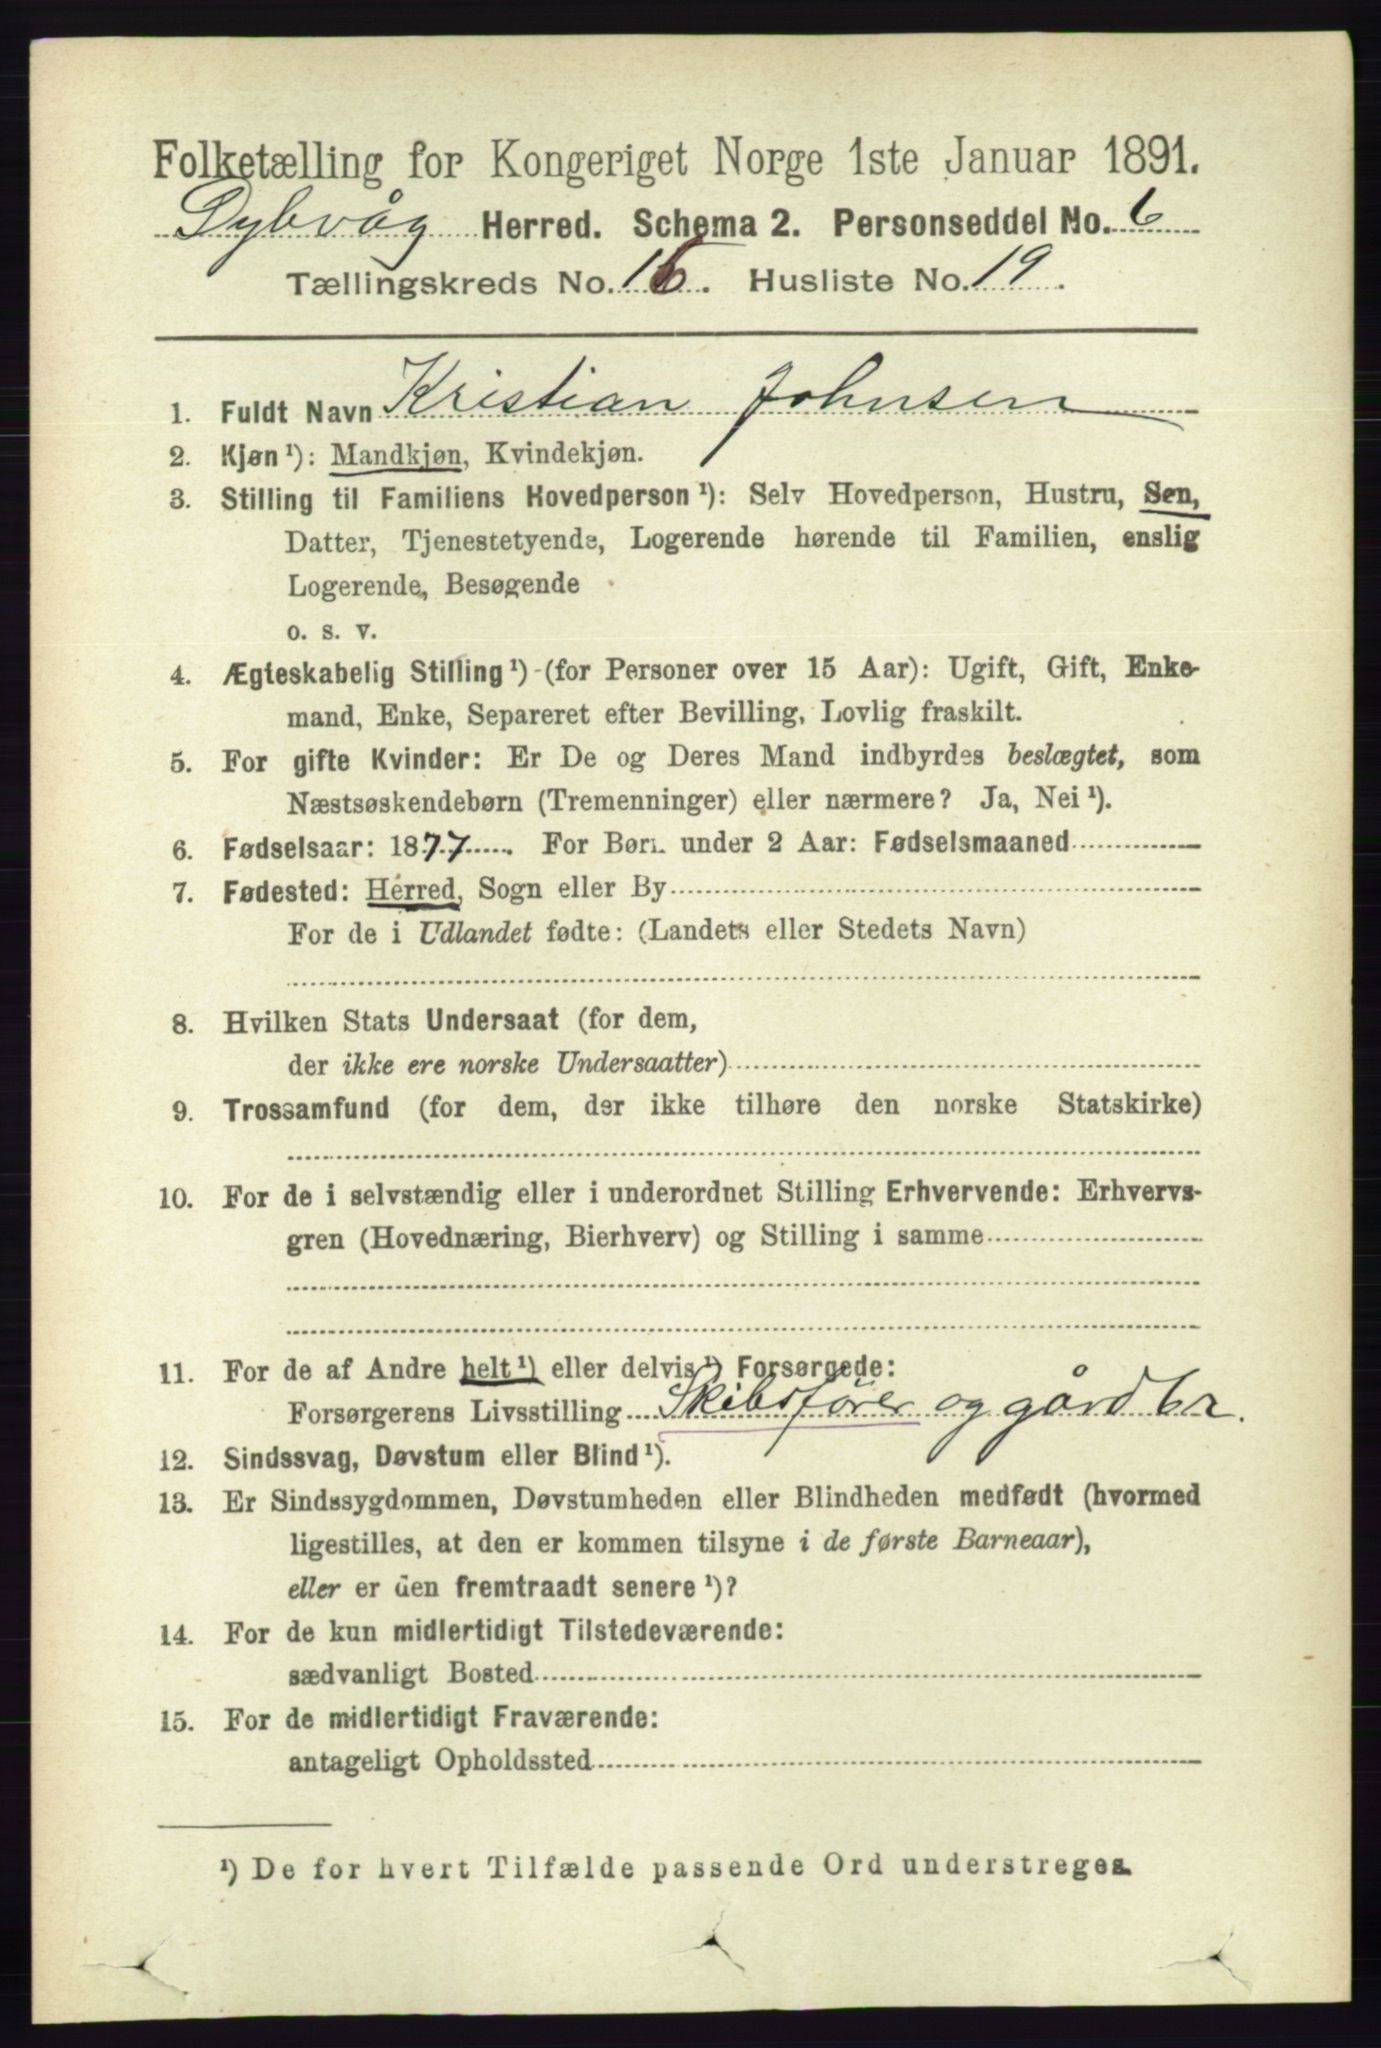 Folketælling for Kongeriget Norge 1ste Januar 1891.
Dybvåg Herred. Schema 2. Personseddel No. 6
Tællingskreds No. 16. Husliste No. 19.
1. Fuldt Navn Kristian Johnsen
2. Kjøn ¹): Mandkjøn, Kvindekjøn.
3. Stilling til Familiens Hovedperson ¹): Selv Hovedperson, Hustru, Søn,
Datter, Tjenestetyende, Logerende hørende til Familien, enslig
Logerende, Besøgende
o. s. v.
4. Ægteskabelig Stilling ¹) (for Personer over 15 Aar): Ugift, Gift, Enke-
mand, Enke, Separeret efter Bevilling, Lovlig fraskilt.
5. For gifte Kvinder: Er De og Deres Mand indbyrdes beslægtet, som
Næstsøskendebørn (Tremenninger) eller nærmere? Ja, Nei ¹).
6. Fødselsaar: 1877. For Børn under 2 Aar: Fødselsmaaned
7. Fødested: Herred, Sogn eller By
For de i Udlandet fødte: (Landets eller Stedets Navn)
8. Hvilken Stats Undersaat (for dem,
der ikke ere norske Undersaatter)
9. Trossamfund (for dem, der ikke tilhøre den norske Statskirke)
10. For de i selvstændig eller i underordnet Stilling Erhvervende: Erhvervs-
gren (Hovednæring, Bierhverv) og Stilling i samme
11. For de af Andre helt ¹) eller delvis ¹) Forsørgede:
Forsørgerens Livsstilling Skibsfører og gårdbr.
12. Sindssvag, Døvstum eller Blind ¹).
13. Er Sindssygdommen, Døvstumheden eller Blindheden medfødt (hvormed
ligestilles, at den er kommen tilsyne i de første Barneaar),
eller er den fremtraadt senere ¹)?
14. For de kun midlertidigt Tilstedeværende:
sædvanligt Bosted
15. For de midlertidigt Fraværende:
antageligt Opholdssted
¹) De for hvert Tilfælde passende Ord understreges.